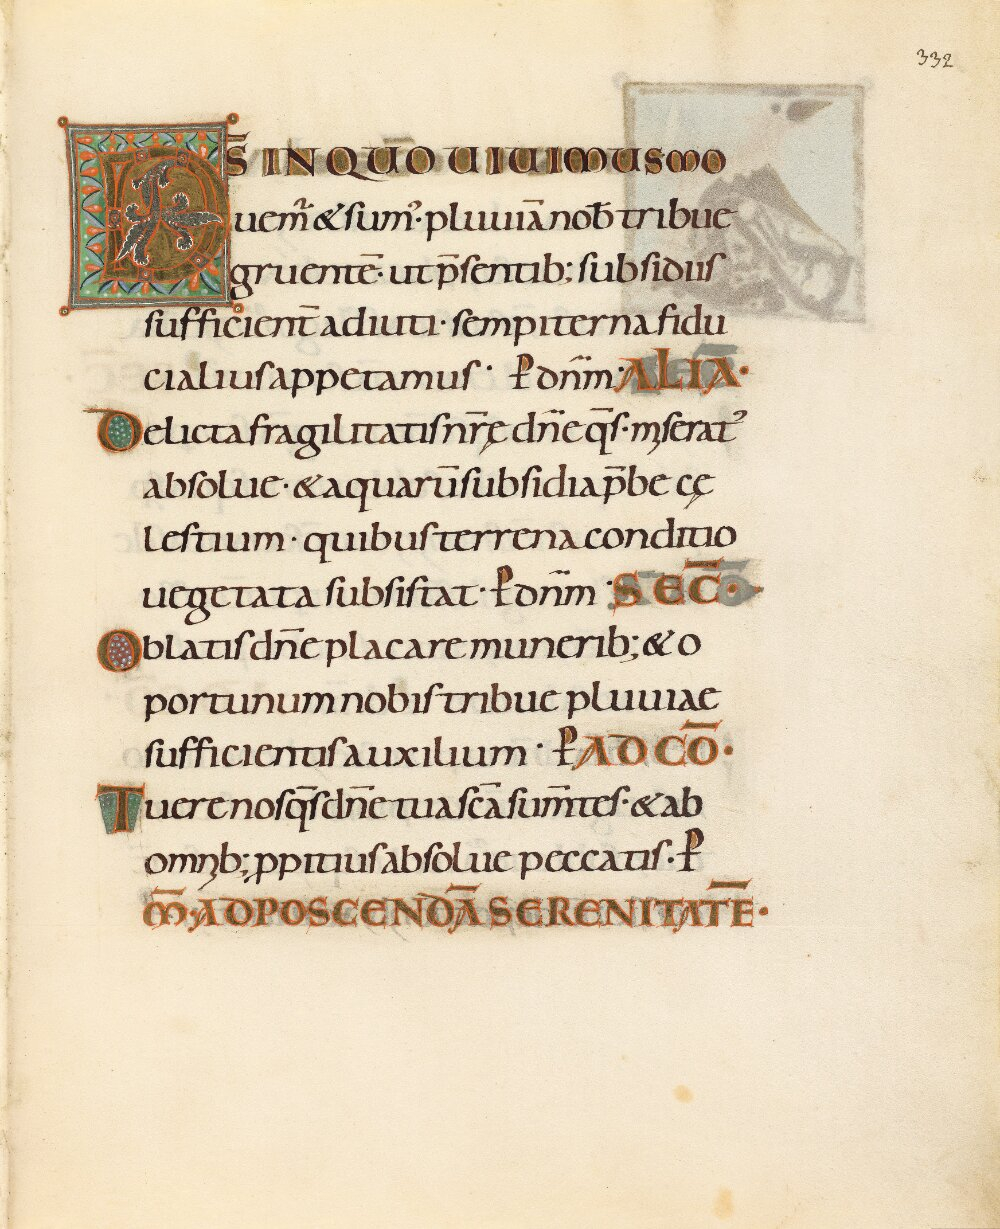 332
DS̄ IN QUO UIUIMUS MO
uem̃ & sum᾽· pluuiā nob̄ tribue
gruentē· ut p̄sentib; subsidiis
sufficient̄ adiuti· sempiterna fidu
cialius appetamus· P dn̄m· ALIA·
Delicta fragilitatis nr̄ę dn̄e q̄s· miserat᾽
absolue· & aquarū subsidia p̄be cę
lestium· quibus terrena conditio
uegetata subsistat· P dn̄m· SEC̄·
Oblatis dn̄e placare munerib; & o
portunum nobis tribue pluuiae
sufficientis auxilium· P AD CŌ·
Tuere nos q̄s dn̄e tua sc̄a sum̄tes· & ab
omnib; ppitius absolue peccatis· P
M̄· AD POSCENDĀ SERENITATĒ·